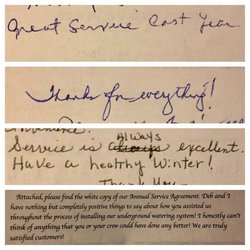 Great Service Last Year
Thanks for everything!
Service is ALWAYS excellent.
Have a healthy Winter!
Thank You
Attached, please find the white copy of our Annual Service Agreement. Deb and I
have nothing but completely positive things to say about how you assisted us
throughout the process of installing our underground watering system! I honestly can't
think of anything that you or your crew could have done any better! We are truly
satisfied customers!